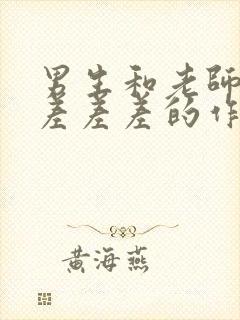 男生和老師
差差差的作
黄海燕